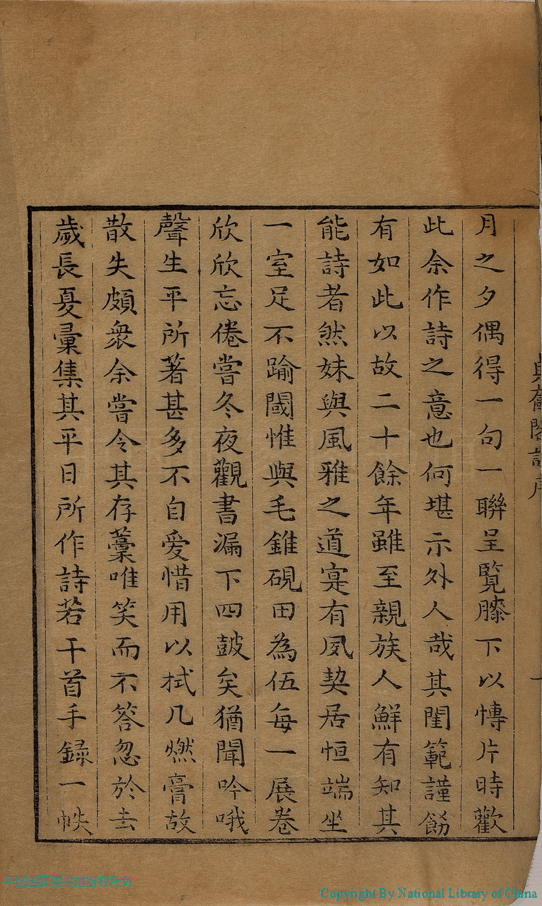 月之夕偶得一句一聯呈覽膝下以慱片時歡
此余作詩之意也何堪示外人哉其閨範謹飭
有如此以故二十餘年雖至親族人鮮有知其
能詩者然妹與風雅之道寔有夙契居恒端坐
一室足不踰閾惟與毛錐硯田為伍每一展卷
欣欣忘倦嘗冬夜觀書漏下四鼓矣猶聞吟哦
聲生平所著甚多不自愛惜用以拭几燃膏故
散失頗衆余嘗令其存藁唯笑而不答忽於去
歲長夏彙集其平日所作詩若干首手錄一帙
Copyright By National Library of China